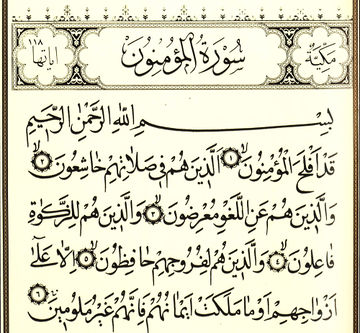 اياتها ١١٨ سُورَةُ الْمُؤْمِنُونَ مَكِّيَّة
بِسْمِ اللّٰهِ الرَّحْمٰنِ الرَّحِيمِ
قَدْ اَفْلَحَ الْمُؤْمِنُونَ ١ اَلَّذِينَ هُمْ فِى صَلَاتِهِمْ خَاشِعُونَ ٢
وَالَّذِينَ هُمْ عَنِ اللَّغْوِ مُعْرِضُونَ ٣ وَالَّذِينَ هُمْ لِلزَّكٰوةِ
فَاعِلُونَ ٤ وَالَّذِينَ هُمْ لِفُرُوجِهِمْ حَافِظُونَ ٥ اِلَّا عَلٰٓى
اَزْوَاجِهِمْ اَوْ مَا مَلَكَتْ اَيْمَانُهُمْ فَاِنَّهُمْ غَيْرُ مَلُومِينَ ٦